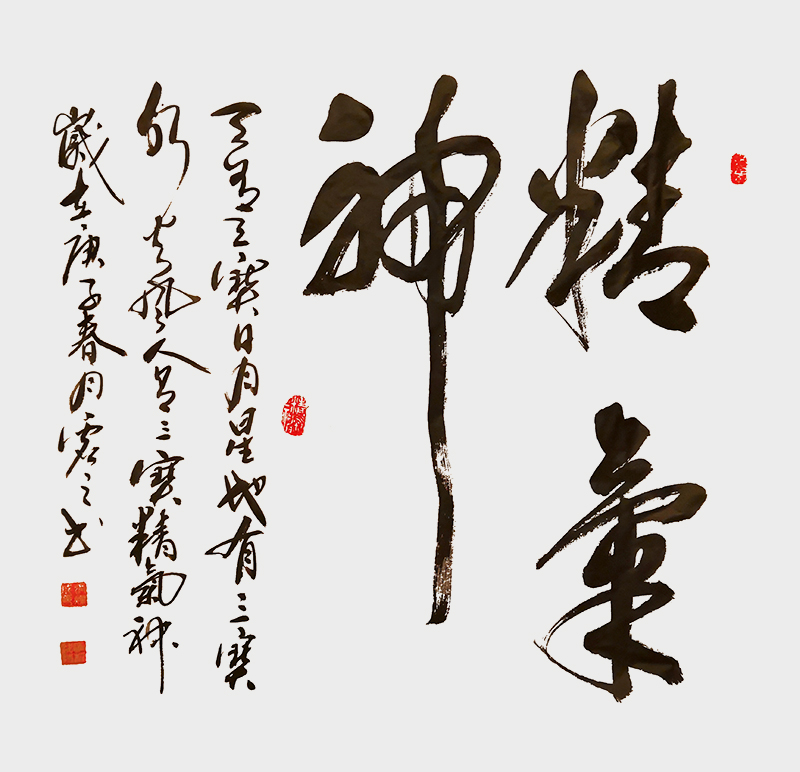 精氣
神
天有三寶日月星地有三寶
水火風人有三寶精氣神
歲在庚子春月之書